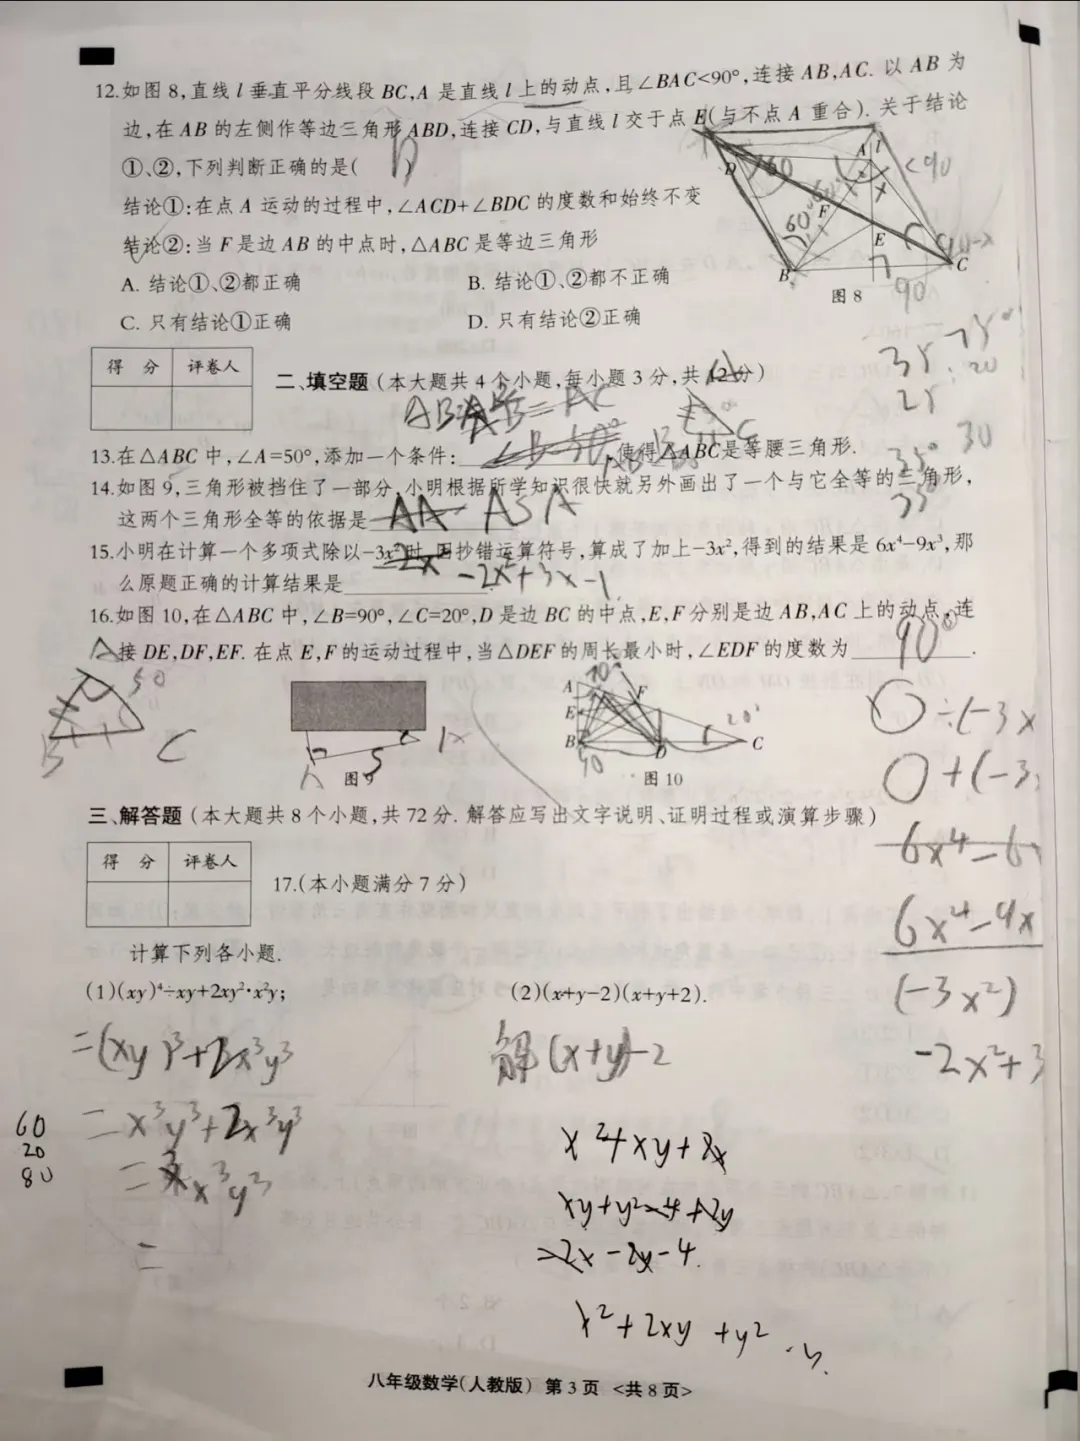 12.如图8,直线l垂直平分线段BC,A是直线l上的动点,且∠BAC<90°,连接AB,AC.以AB为
边,在AB的左侧作等边三角形ABD,连接CD,与直线l交于点E(与不点A重合).关于结论
①、②,下列判断正确的是( )
结论①:在点A运动的过程中,∠ACD+∠BDC的度数和始终不变
结论②:当F是边AB的中点时,△ABC是等边三角形
A. 结论①、②都正确
B. 结论①、②都不正确
C. 只有结论①正确
D. 只有结论②正确
D
A
l
F
E
B
C
60
60°
60°
x
<90
90-x
90
图8
35
75°
20
25
35°
30
35°
得 分 评卷人
二、填空题(本大题共4个小题,每小题3分,共12分)
AB=AC
13.在△ABC中,∠A=50°,添加一个条件: ,使得△ABC是等腰三角形.
14.如图9,三角形被挡住了一部分,小明根据所学知识很快就另外画出了一个与它全等的三角形,
这两个三角形全等的依据是 ASA
15.小明在计算一个多项式除以-3x²时,因抄错运算符号,算成了加上-3x²,得到的结果是6x⁴-9x³,那
么原题正确的计算结果是 -2x²+3x-1.
16.如图10,在△ABC中,∠B=90°,∠C=20°,D是边BC的中点,E,F分别是边AB,AC上的动点,连
接DE,DF,EF.在点E,F的运动过程中,当△DEF的周长最小时,∠EDF的度数为 90° .
50
B
C
A
S
图9
70°
A
F
E
B
D
C
20°
90
图10
三、解答题(本大题共8个小题,共72分.解答应写出文字说明、证明过程或演算步骤)
得 分 评卷人
17.(本小题满分7分)
计算下列各小题.
(1)(xy)⁴÷xy+2xy²·x²y;
(2)(x+y-2)(x+y+2).
=(xy)³+2x³y³
=x³y³+2x³y³
=3x³y³
=
60
20
80
解(x+y)-2
x²+xy+2x
xy+y²-4+2y
-2x-2y-4
x²+2xy+y²
()÷(-3x
()+(-3
6x⁴-6
6x⁴-4x
(-3x²)
-2x²+3
八年级数学(人教版) 第3页 <共8页>